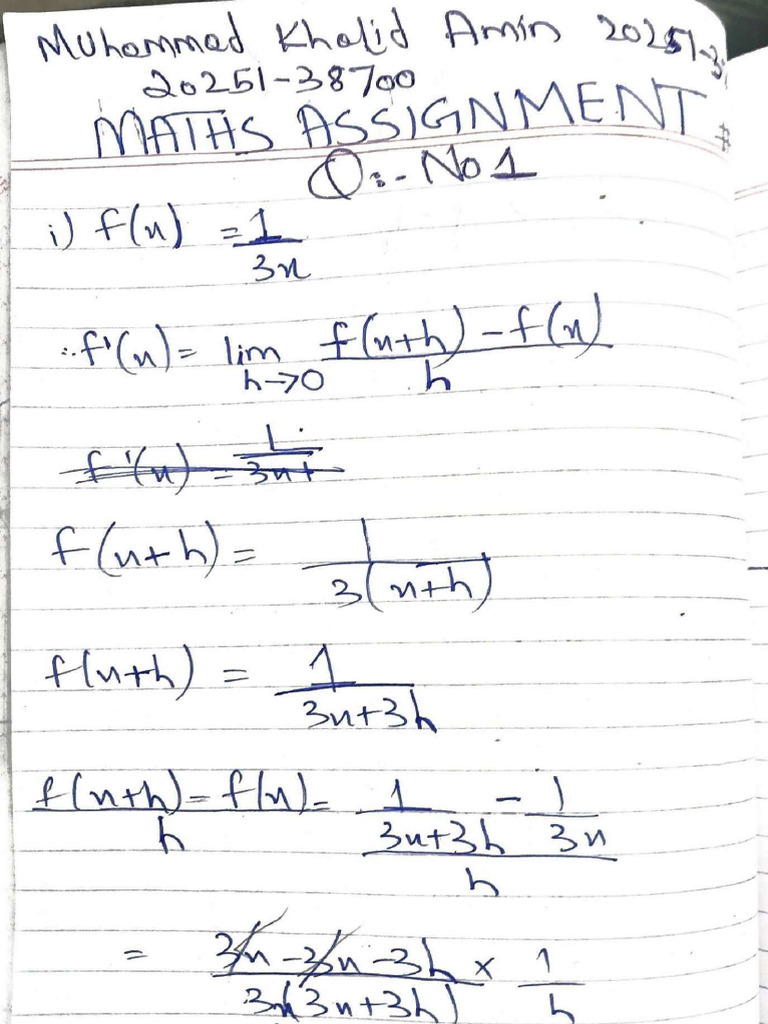 Muhammad Khalid Amin 20251-3
20251-38700
MATHS ASSIGNMENT #
Q:- No 1
i) f(x) = 1/3x
∴ f'(x) = lim h→0 f(x+h) - f(x) / h
f'(x) = 1/3x+
f(x+h) = 1 / 3(x+h)
f(x+h) = 1 / 3x+3h
f(x+h) - f(x) / h = 1/3x+3h - 1/3x / h
= 3x - 3x - 3h / 3x(3x+3h) × 1/h